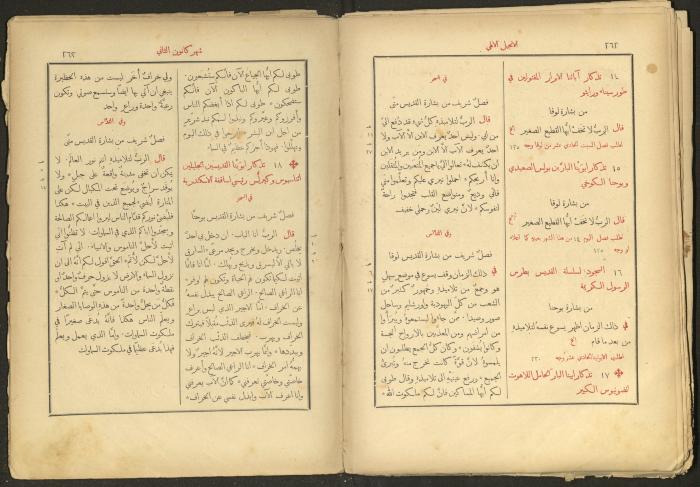 ٢٦٢
الانجيل الالهي
١٤ تذكار آبائنا الابرار المقتولين في
طورسينا ورايثو
من بشارة لوقا
قال الربُّ لا تخف ايُّها القطيع الصغير
اطلب فصل السبت الحادي عشر من لوقا وجه
١٥ تذكار ابوينا البارَّين بولس الصعيدي
ويوحنا الكوخي
من بشارة لوقا
قال الربُّ لا تخف ايُّها القطيع الصغير
اطلب فصل اليوم ١٤ من هذا الشهر
١٦ السجود لسلسلة القديس بطرس
الرسول المكرَّمة
من بشارة يوحنا
في ذلك الزمان اظهر يسوع نفسه لتلاميذهِ
من بعد ما قام
١٧ تذكار ابينا البار الحامل اللاهوت
انطونيوس الكبير
في السحر
فصلٌ شريف من بشارة القديس متَّى
قال الربُّ لتلاميذهِ كلُّ شيءٍ قد دُفع اليَّ
من ابي. وليس احدٌ يعرف الابن الَّا الآب ولا
احدٌ يعرف الآب الَّا الابن ومن يريد الابن
ان يكشف لهُ. تعالوا اليَّ يا جميع المتعبين والمثقَّلين
وانا أُريحكم. احملوا نيري عليكم وتعلَّموا منّي
فاني وديعٌ ومتواضع القلب فتجدوا راحةً
لنفوسكم. لانَّ نيري ليّنٌ وحملي خفيف
وفي القداس
فصلٌ شريف من بشارة القديس لوقا
في ذلك الزمان وقف يسوع في موضعٍ سهلٍ
هو وجمعٌ من تلاميذهِ وجمهورٌ كثيرٌ من
الشعب من كلّ اليهودية واورشليم وساحل
صور وصيدا. ممَّن جاءوا ليستمعوهُ ويبرأوا
من امراضهم. ومن المعذَّبين بالارواح النجسة
وكانوا يُشفَون. وكان كلُّ الجمع يطلبون ان
يلمسوهُ لانَّ قوَّةً كانت تخرج منهُ وتُبرئ
الجميع. ورفع عينيهِ الى تلاميذهِ وقال طوبى
لكم ايُّها المساكين فانَّ لكم ملكوت الله.
شهر كانون الثاني
٢٦٣
طوبى لكم ايُّها الجياع الآن فانَّكم ستُشبَعون.
طوبى لكم ايُّها الباكون الآن فانَّكم
ستضحكون. طوبى لكم اذا ابغضكم الناس
من اجل ابن البشر. افرحوا في ذلك اليوم
وتهلَّلوا. فهوذا أجركم عظيمٌ في السماء
١٨ تذكار ابوينا القديسين الجليلين
اثناسيوس وكيرلُّس رئيسي اساقفة الاسكندرية
في السحر
فصلٌ شريف من بشارة القديس يوحنا
قال الربُّ انا الباب. ان دخل بي احدٌ
يخلُص. ويدخل ويخرج ويجد مرعًى. السارق
لا يأتي الَّا ليسرق ويذبح ويُهلك. امَّا انا فانّما
اتيتُ لتكون لهم الحياة وتكون لهم اوفر.
انا الراعي الصالح. الراعي الصالح يبذل نفسهُ
عن الخراف. امَّا الأجير الذي ليس براعٍ
وليست الخراف لهُ فيرى الذئب مقبلًا فيترك
الخراف ويهرب. فيخطف الذئب الخراف
ويبدّدها. وانَّما يهرب الاجير لانَّهُ اجيرٌ ولا
يهمُّهُ امر الخراف. انا الراعي الصالح وأعرف
خاصَّتي وخاصَّتي تعرفني. كما انَّ الآب يعرفني
وانا اعرف الآب وابذل نفسي عن الخراف.
ولي خرافٌ أُخر ليست من هذه الحظيرة
ينبغي ان آتي بها ايضًا وستسمع صوتي وتكون
رعيَّةٌ واحدة وراعٍ واحد
وفي القدَّاس
فصلٌ شريف من بشارة القديس متَّى
قال الربُّ لتلاميذهِ انتم نور العالم. لا
يمكن ان تخفى مدينةٌ واقعة على جبلٍ. ولا
يوقد سراجٌ ويوضع تحت المكيال لكن على
المنارة ليُضيء لجميع الذين في البيت. هكذا
فليُضئ نوركم قدَّام الناس ليروا اعمالكم الصالحة
ويمجّدوا اباكم الذي في السماوات. لا تظنُّوا اني
اتيتُ لأحلَّ الناموس والانبياء. اني لم آتِ
لأحلَّ لكن لأُتمّ. الحقَّ اقول لكم انَّهُ الى ان
تزول السماء والارض لا يزول حرفٌ واحدٌ او
نقطةٌ واحدة من الناموس حتَّى يتمَّ الكلُّ.
فكلُّ من يحلُّ واحدةً من هذه الوصايا الصغار
ويعلّم الناس هكذا فانَّهُ يُدعى صغيرًا في
ملكوت السماوات. وامَّا الذي يعمل ويعلّم
فهذا يُدعى عظيمًا في ملكوت السماوات